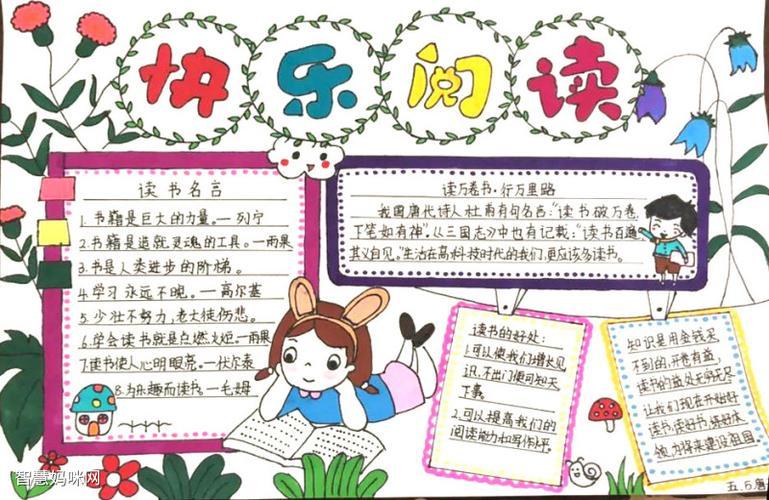 快乐阅读
读书名言
1.书籍是巨大的力量。一列宁
2.书籍是造就灵魂的工具。一雨果
3.书是人类进步的阶梯。
4.学习永远不晚。一高尔基
5.少壮不努力,老大徒伤悲。
6.学会读书就是点燃火炬。一雨果
7.读书使人心明眼亮。一伏尔泰
8.为乐趣而读书。一毛姆
读万卷书·行万里路
我国唐代诗人杜甫有句名言:"读书破万卷,
下笔如有神",从三国志少中也有记载:"读书百遍
其义自见。"生活在高科技时代的我们,更应该多读书。
读书的好处:
1.可以使我们增长见
识,不出门便可知天
下事。
2.可以提高我们的
阅读能力和写作水平。
知识是用金钱买
不到的,开卷有益,
读书的益处无穷无尽
让我们现在开始好
读书,读好书,练好本
领,为将来建设祖国
五.5.
智慧妈咪网